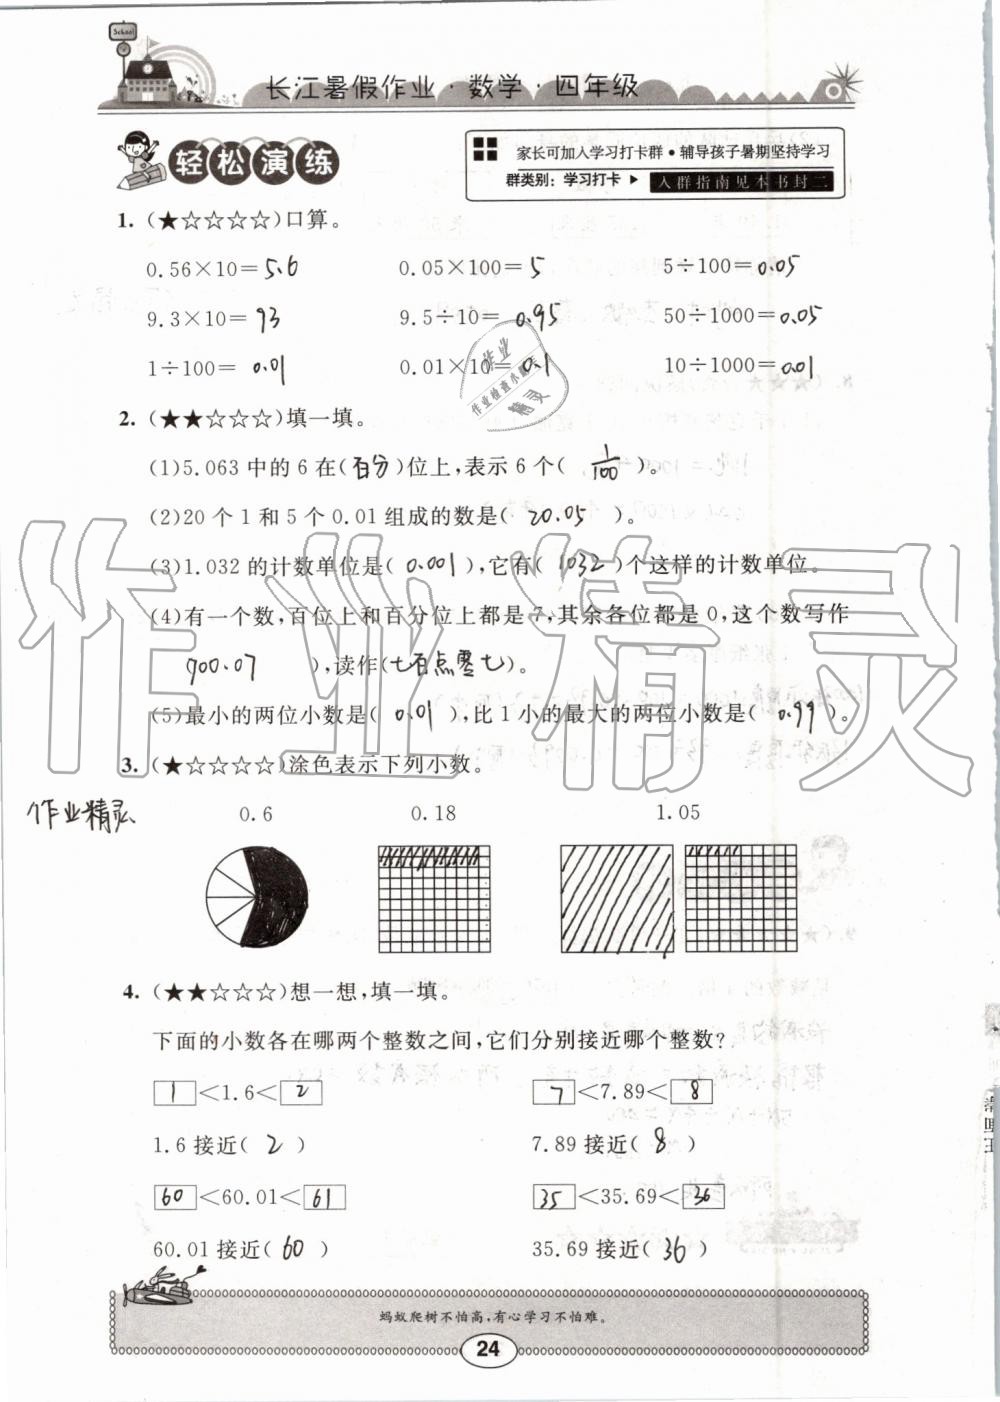 School
长江暑假作业·数学·四年级
轻松演练
家长可加入学习打卡群·辅导孩子暑期坚持学习
群类别：学习打卡 ▶ 入群指南见本书封二
1. (★☆☆☆☆)口算。
0.56×10= 5.6 0.05×100= 5 5÷100= 0.05
9.3×10= 93 9.5÷10= 0.95 50÷1000= 0.05
1÷100= 0.01 0.01×10= 0.1 10÷1000= 0.01
作业
作业检查小助手
精灵
2. (★★☆☆☆)填一填。
(1)5.063中的6在(百分)位上,表示6个( 1/100 )。
(2)20个1和5个0.01组成的数是( 20.05 )。
(3)1.032的计数单位是( 0.001 ),它有( 1032 )个这样的计数单位。
(4)有一个数,百位上和百分位上都是7,其余各位都是0,这个数写作
700.07 ),读作(七百点零七)。
(5)最小的两位小数是( 0.01 ),比1小的最大的两位小数是( 0.99 )。
作业精灵
3. (★☆☆☆☆)涂色表示下列小数。
作业精灵 0.6 0.18 1.05
4. (★★☆☆☆)想一想,填一填。
下面的小数各在哪两个整数之间,它们分别接近哪个整数?
1 <1.6< 2 7 <7.89< 8
1.6接近( 2 ) 7.89接近( 8 )
60 <60.01< 61 35 <35.69< 36
60.01接近( 60 ) 35.69接近( 36 )
蚂蚁爬树不怕高,有心学习不怕难。
24